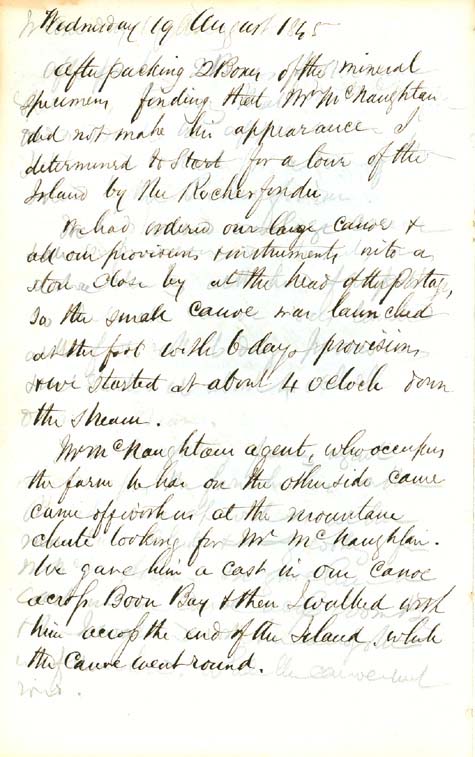 Wednesday 19 August 1845
After packing 2 Boxes of the mineral
specimens finding that Mr McNaughtan
did not make his appearance I
determined to start for a tour of the
Island by the Rocherfendu
We had ordered our large canoe &
all our provisions & instruments into a
store close by at the head of the Portage,
So the small canoe was launched
at the foot with 6 days provisions
& we started at about 4 oClock down
the stream.
Mr McNaughtans agent, who occupies
the farm he has on the other side came
came off with us at the mountain
chute looking for Mr McNaughtan.
We gave him a cast in our canoe
across Boon Bay & then I walked with
him across the end of the Island while
the Canoe went round.